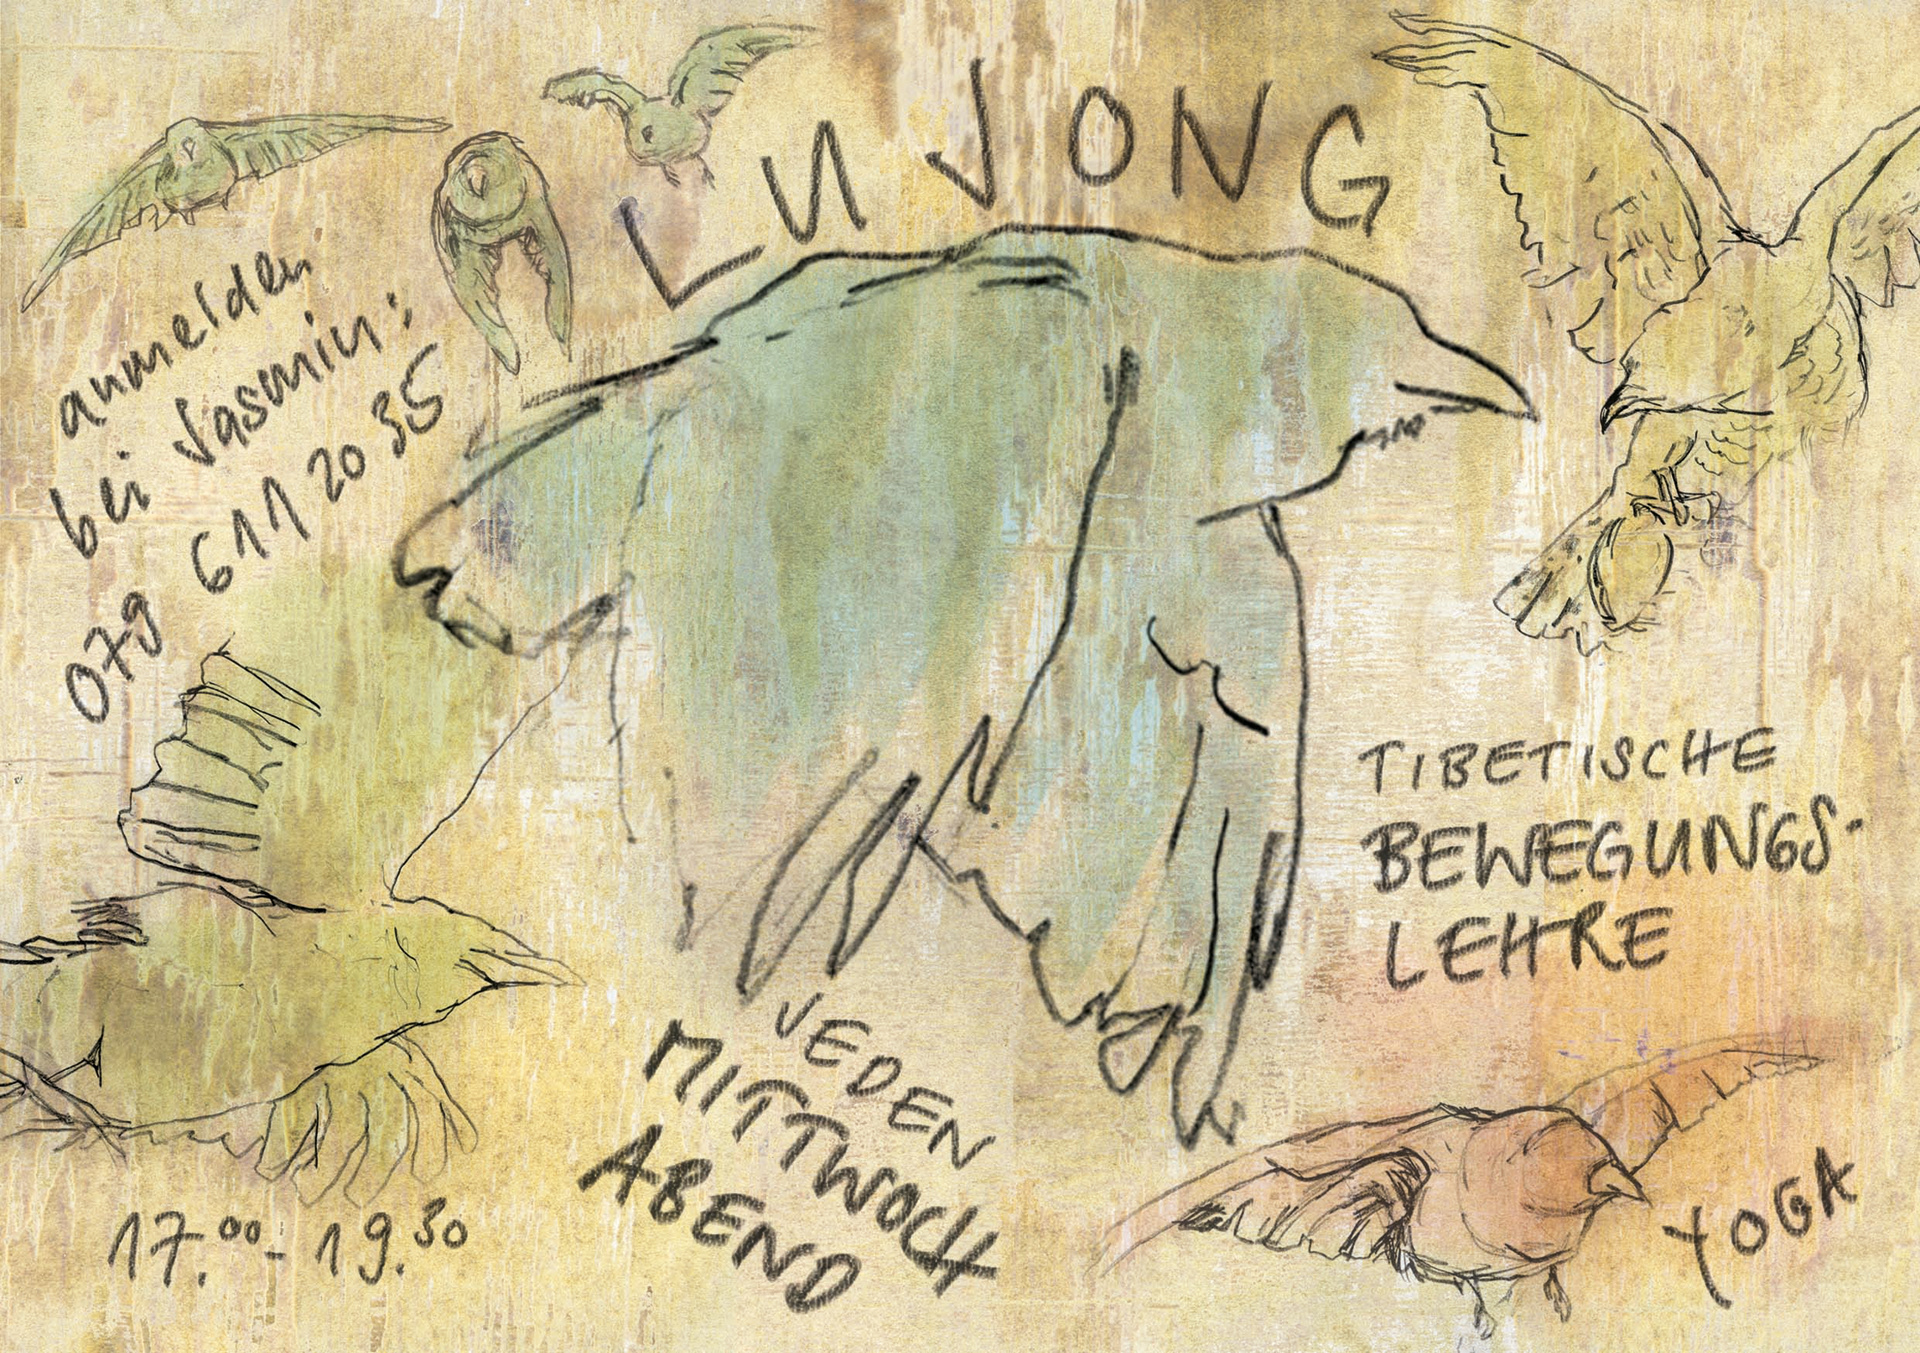 LU JONG
anmelden
bei Jasmin:
079 611 20 35
TIBETISCHE
BEWEGUNGS-
LEHRE
JEDEN
MITTWOCH
ABEND
17.00- 19.30
YOGA